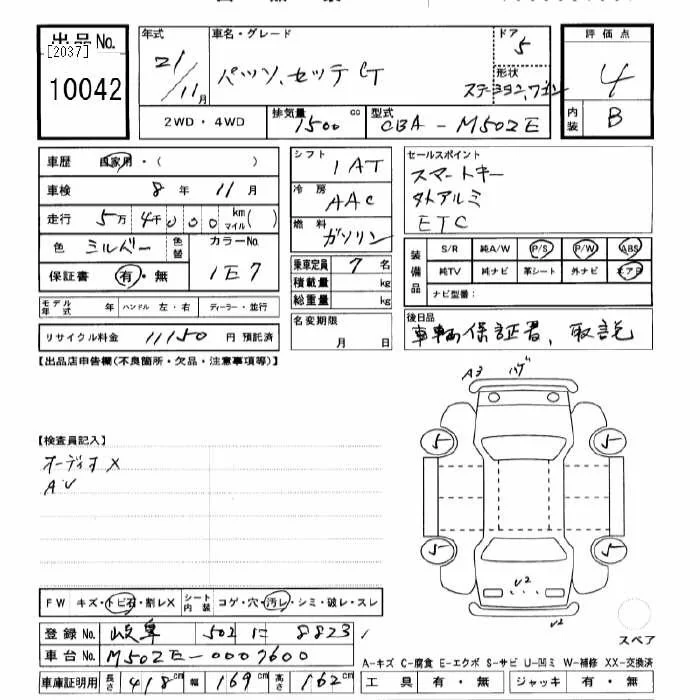 出品No.
[2037]
10042
年式
21/11月
車名・グレード
パッソ.セッテ GT
ドア
5
形状
ステーションワゴン
評価点
4
内装
B
2WD・4WD
排気量
1500 cc
型式
CBA-M502E
車歴 自家用・( )
車検 8年 11月
走行 5万 4千 000 km マイル( )
色 シルバー 色替
カラーNo.
1E7
保証書 有・無
モデル年式 年 ハンドル 左・右 ディーラー・並行
リサイクル料金 11150 円 預託済
シフト
1AT
冷房
AAC
燃料
ガソリン
乗車定員 7 名
積載量 kg
総重量 kg
名変期限
月 日
セールスポイント
スマートキー
外アルミ
ETC
装備品
S/R 純A/W P/S P/W ABS
純TV 純ナビ 革シート 外ナビ エアB
ナビ型番:
後日品
車輌保証書、取説
【出品店申告欄(不良箇所・欠品・注意事項等)】
【検査員記入】
オーディオ×
AU
A3 ハゲ
5
5
5
5
U2
U2
スペア
FW キズ・トビ石・割レX シート内装 コゲ・穴・汚レ・シミ・破レ・スレ
登録No. 岐阜 502 に 8823
車台No. M502E-0007600
車庫証明用 長さ 418cm 幅 169cm 高さ 162cm
A-キズ C-腐食 E-エクボ S-サビ U-凹ミ W-補修 XX-交換済
工具 有・無 ジャッキ 有・無